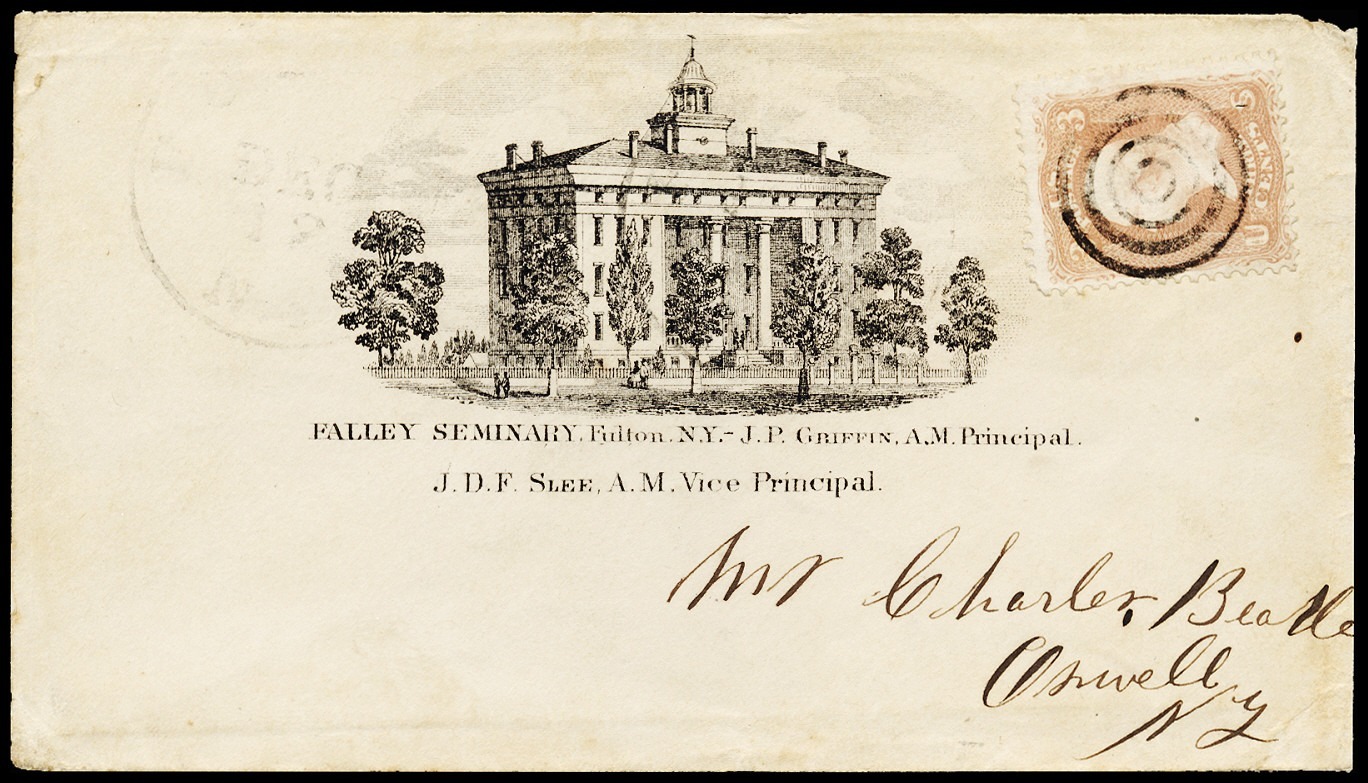 3
3
U
UNITED
FALLEY SEMINARY. Fulton. N.Y.- J.P. GRIFFIN, A.M. Principal.
J.D.F. SLEE, A.M. Vice Principal.
Mr Charles
Orwell
NY